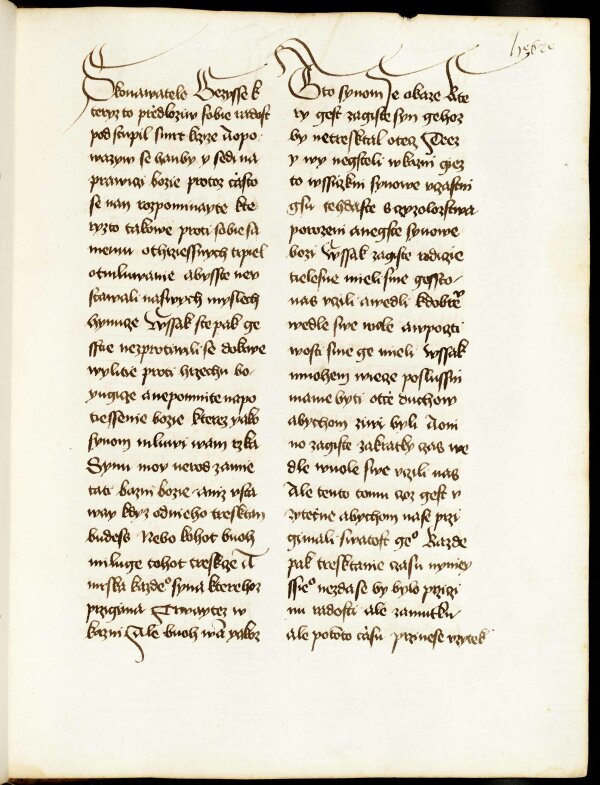 Skonawatele Gezisse k
teryzto předloziw sobie radost
podstupil smrt krzize A opo
wazyw se hanby y sedi na
prawiczi bozie protoz cżasto
se nan rozpominayte kte
ryzto takowe proti sobie sa
memu od hrziessnych trpiel
odmluwanie abysste neu
stawali na swych myslech
hynucze Wssak ste pak ge
sstie nezprotiwili se do krwe
wylitie proti hrziechu bo
yugicze a nepomnite napo
tiessenie bozie kterez yako
synom mluwi wam rzka
Synu moy nerod zame
tati kazni bozie aniz usta
way kdyz od nieho tresktan
budess Nebo kohoz buoh
miluge tohot treskcze A
mrska kazdeº syna kterehoz
przigima Trwaytez w
kazni Ale buoh wā yakoz
hebre
to synom se okaze Kte
ry gest zagiste syn gehoz
by netresktal otecz Neez
y wy negsteli w kazni giez
to wssiczkni synowe uczastni
gsu tehdaste z czyzolozstwa
porozeni a negste synowe
bozi Wssak zagiste rodiczie
tielesne mieli sme gessto
nas uczili a wedli k dobrēu
wedle swe wole a w pocti
wosti sme ge mieli Wssak
mnohem wiecze poslussni
mame byti otcze duchow
abychom ziwi byli A oni
no zagiste za kratky czas we
dle wuole swe uczili nas
Ale tento tomu ucz gest u
zytecne abychom nass przi
gimali swatost geº Kazde
pak tresktanie czasu nyniey
ssieº nezda se by bylo przizi
nu radosti ale zamutku
ale potōto cżasu przinese uzytek